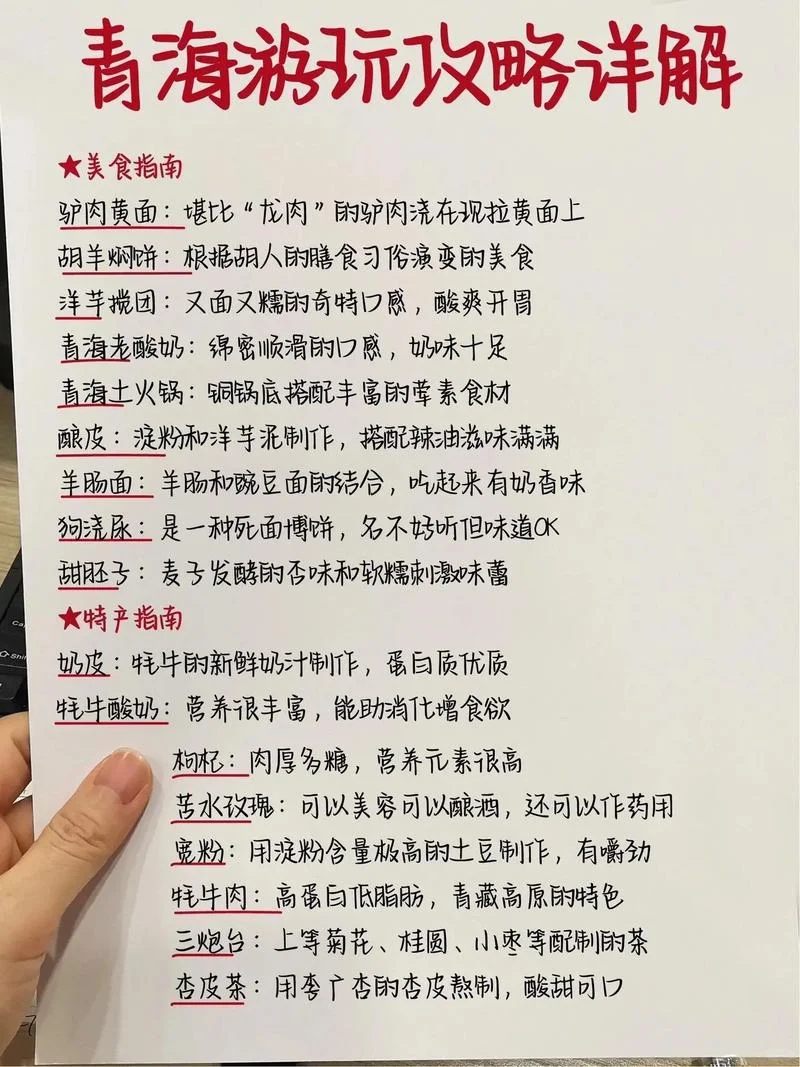 青海游玩攻略详解
★美食指南
驴肉黄面：堪比“龙肉”的驴肉浇在现拉黄面上
胡羊焖饼：根据胡人的膳食习俗演变的美食
洋芋搅团：又面又糯的奇特口感，酸爽开胃
青海老酸奶：绵密顺滑的口感，奶味十足
青海土火锅：铜锅底搭配丰富的荤素食材
酿皮：淀粉和洋芋泥制作，搭配辣油滋味满满
羊肠面：羊肠和豌豆面的结合，吃起来有奶香味
狗浇尿：是一种死面博饼，名不好听但味道OK
甜胚子：麦子发酵的香味和软糯刺激味蕾
★特产指南
奶皮：牦牛的新鲜奶汁制作，蛋白质优质
牦牛酸奶：营养很丰富，能助消化增食欲
枸杞：肉厚多糖，营养元素很高
苦水玫瑰：可以美容可以酿酒，还可以作药用
宽粉：用淀粉含量极高的土豆制作，有嚼劲
牦牛肉：高蛋白低脂肪，青藏高原的特色
三炮台：上等菊花、桂圆、小枣等配制的茶
杏皮茶：用李广杏的杏皮熬制，酸甜可口